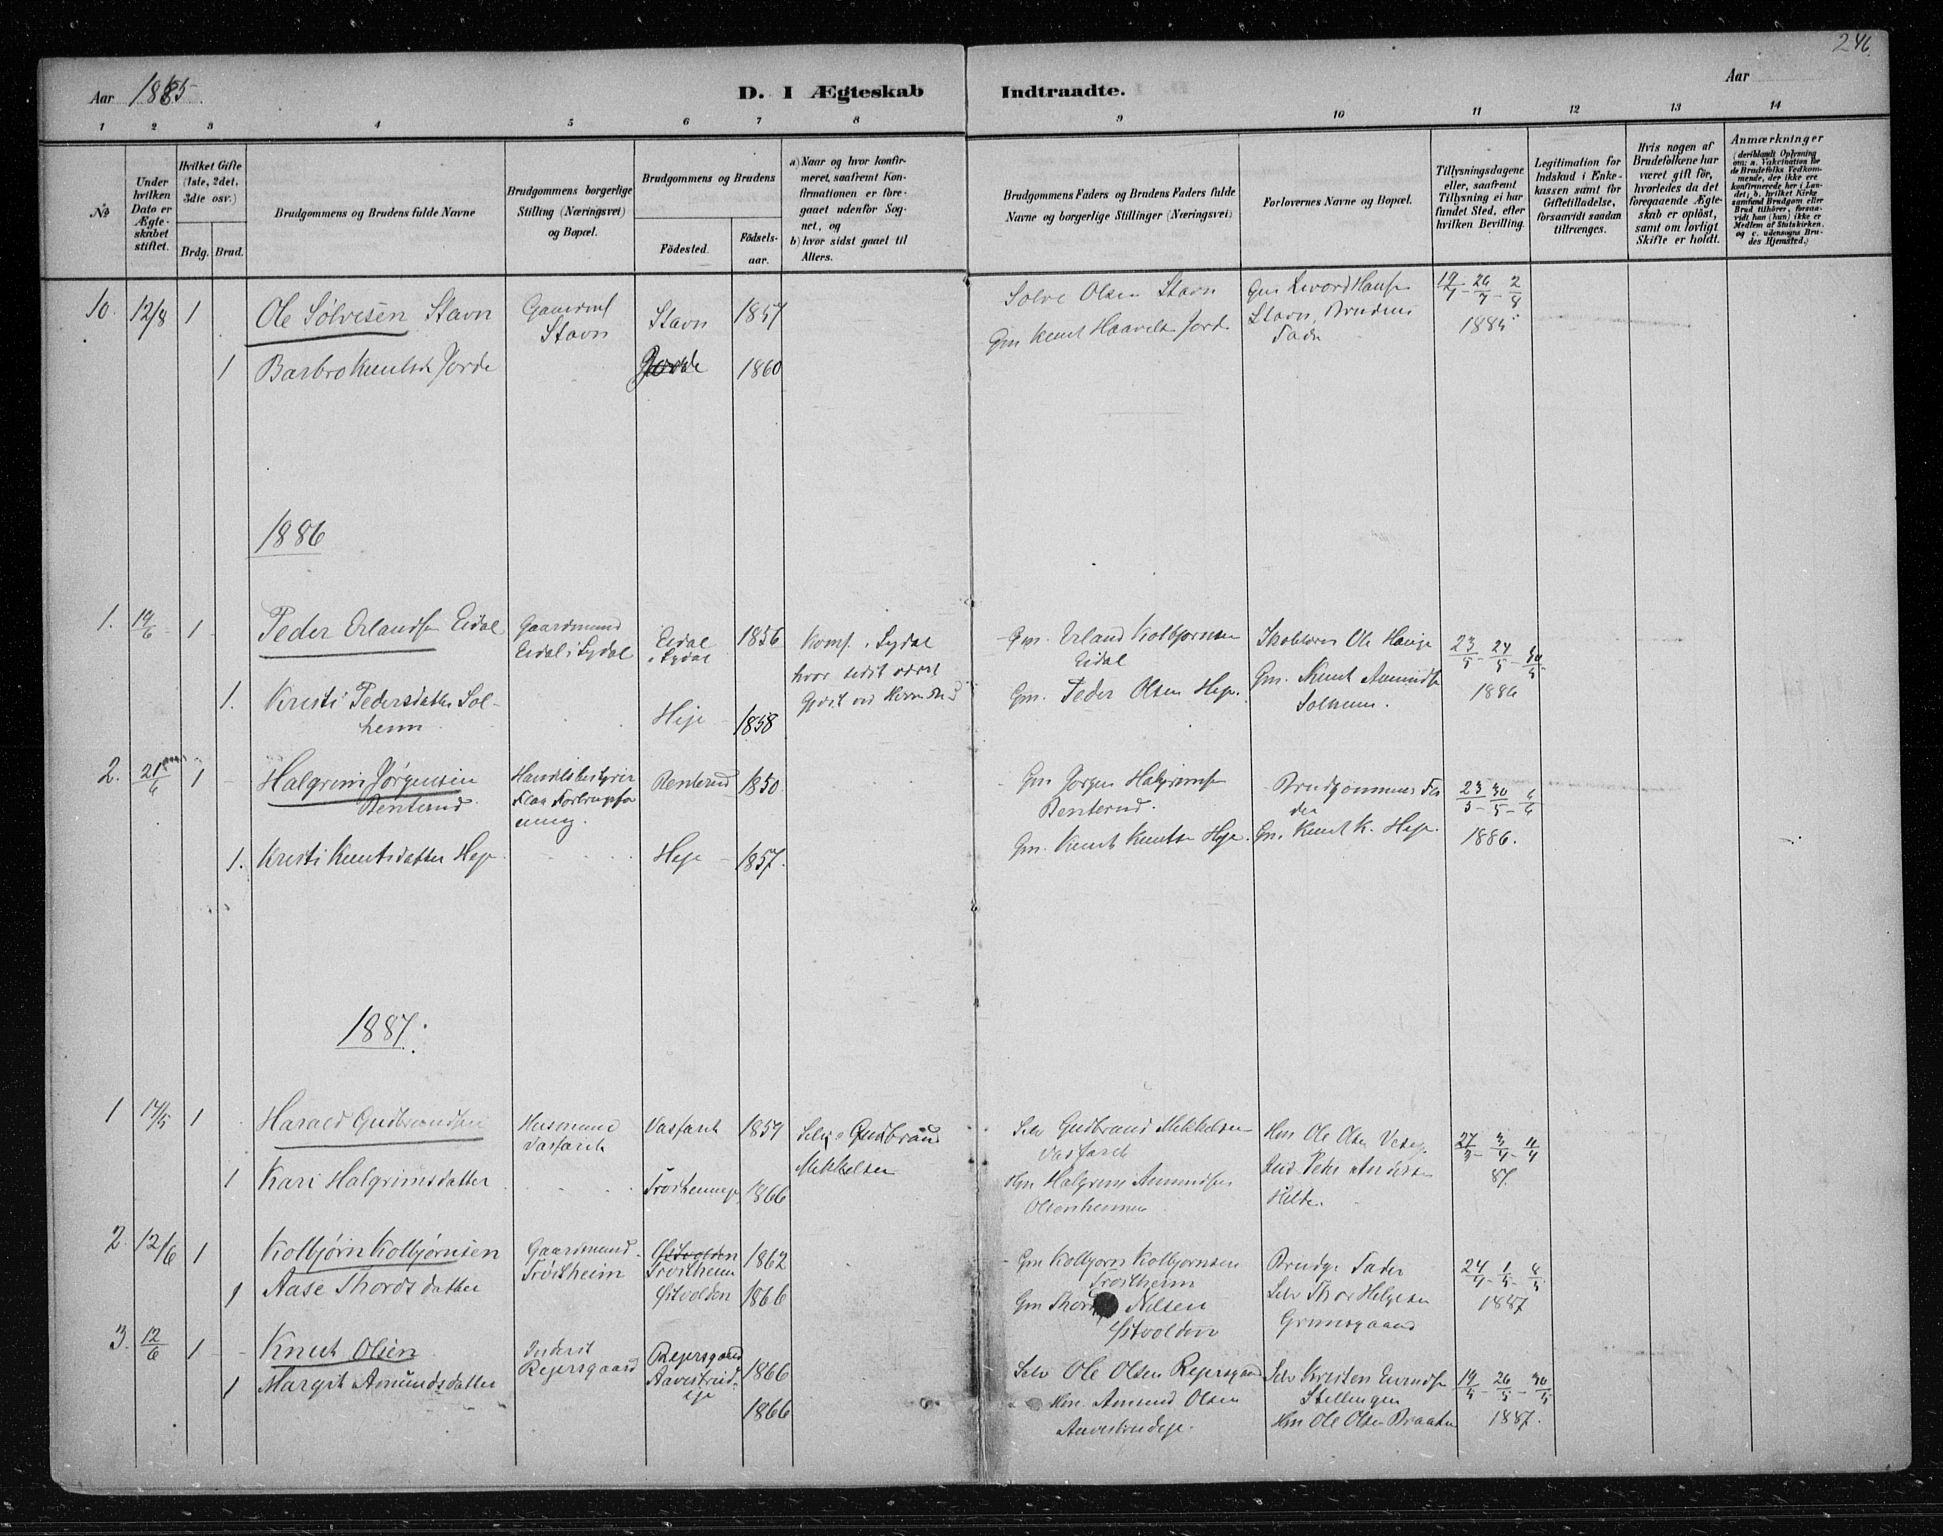 246.
Aar 1885.
D. I Ægteskab Indtraadte.
Aar
1 2 3 4 5 6 7 8 9 10 11 12 13 14
No
Under hvilken Dato er Ægteskabet stiftet.
Hvilket Gifte (1ste, 2det, 3die osv.)
Brdg. Brud.
Brudgommens og Brudens fulde Navne
Brudgommens borgerlige Stilling (Næringsvei) og Bopæl.
Brudgommens og Brudens
Fødested. Fødselsaar.
a) Naar og hvor konfirmeret, saafremt Konfirmationen er foregaaet udenfor Sognet, og
b) hvor sidst gaaet til Alters.
Brudgommens Faders og Brudens Faders fulde Navne og borgerlige Stillinger (Næringsvei)
Forlovernes Navne og Bopæl.
Tillysningsdagene eller, saafremt Tillysning ei har fundet Sted, efter hvilken Bevilling.
Legitimation for Indskud i Enkekassen samt for Giftetilladelse, forsaavidt saadan tiltrænges.
Hvis nogen af Brudefolkene har været gift før, hvorledes da det foregaaende Ægteskab er opløst, samt om lovligt Skifte er holdt.
Anmærkninger
(deriblandt Oplysning om: a. Vakcination for de Brudefolks Vedkommende, der ikke ere konfirmerede her i Landet; b. hvilket Kirkesamfund Brudgom eller Brud tilhører, forsaavidt han (hun) ikke er Medlem af Statskirken, og c. udensogns Brudes Hjemsted.)
10. 12/8 1 Ole Sølvesen Stavn Gaardm Stavn Stavn 1857
Solve Olsen Stavn
Stavn, Brudens Fader
19/7 - 26/7 - 2/8
1885
1 Barbro Knutsd Jorde Jorde 1860
Gm Knut Haavels. Jorde
1886
1. 19/6 1 Peder Erlandsn Eidal Gaardmand Eidal i Sydal Eidal i Sydal 1856
Konf. i Sydal hvor sidst været
Gm. Erland Kolbjørnsen Eidal
Ole Hauge
23/5 - 24/5 - 30/5
1886
1. Kristi Pedersdatter Solheim Heje 1858
Gm. Peder Olsen Heje.
Gm. Knut Amundsn Solheim.
2. 21/6 1 Halgrim Jørgensen Benterud Handelsbestyrer Benterud 1850
Gm Jørgen Halgrimsn Benterud.
Brudgommens Fader
23/5 - 30/5 - 6/6
1886.
1. Kristi Knutsdatter Heje Heje 1857.
Gm. Knut Knutsn Heje.
Gm. Knut K. Heje.
1887.
1 17/5 1 Harald Gudbrandsen Husmand Vasfaret Vasfaret 1859
Selv. Gudbrand Mikkelsen
Selv Gudbrand Mikkelsen Vasfaret
Hm Ole Olsen
27/3 3/4 11/4
87.
1 Kari Halgrimsdatter 1866
Hm Halgrim Amundsen
Peder Andersen
2 12/6 1 Kolbjørn Kolbjørnsen Gaardmand Trøstheim Østvolden Trøstheim 1862
Gm Kolbjørn Kolbjørnsen Trøstheim
Brudg. Fader
24/4 - 1/5 - 8/5
1887
1 Aase Thordsdatter Østvolden 1866
Gm Thord Nilsen Østvolden
Selv Thor Helgesen Grimsgaard
3. 12/6 1 Knut Olsen Inderst Rejersgaard Rejersgaard 1866
Selv Ole Olsen Rejersgaard
Selv Kristen Stillingen
19/5 - 26/5 - 30/5
1887.
1 Margit Amundsdatter Aavestrudeje 1866
Hm. Amund Olsen Aavestrudeje.
Hm Ole Olsen Braaten